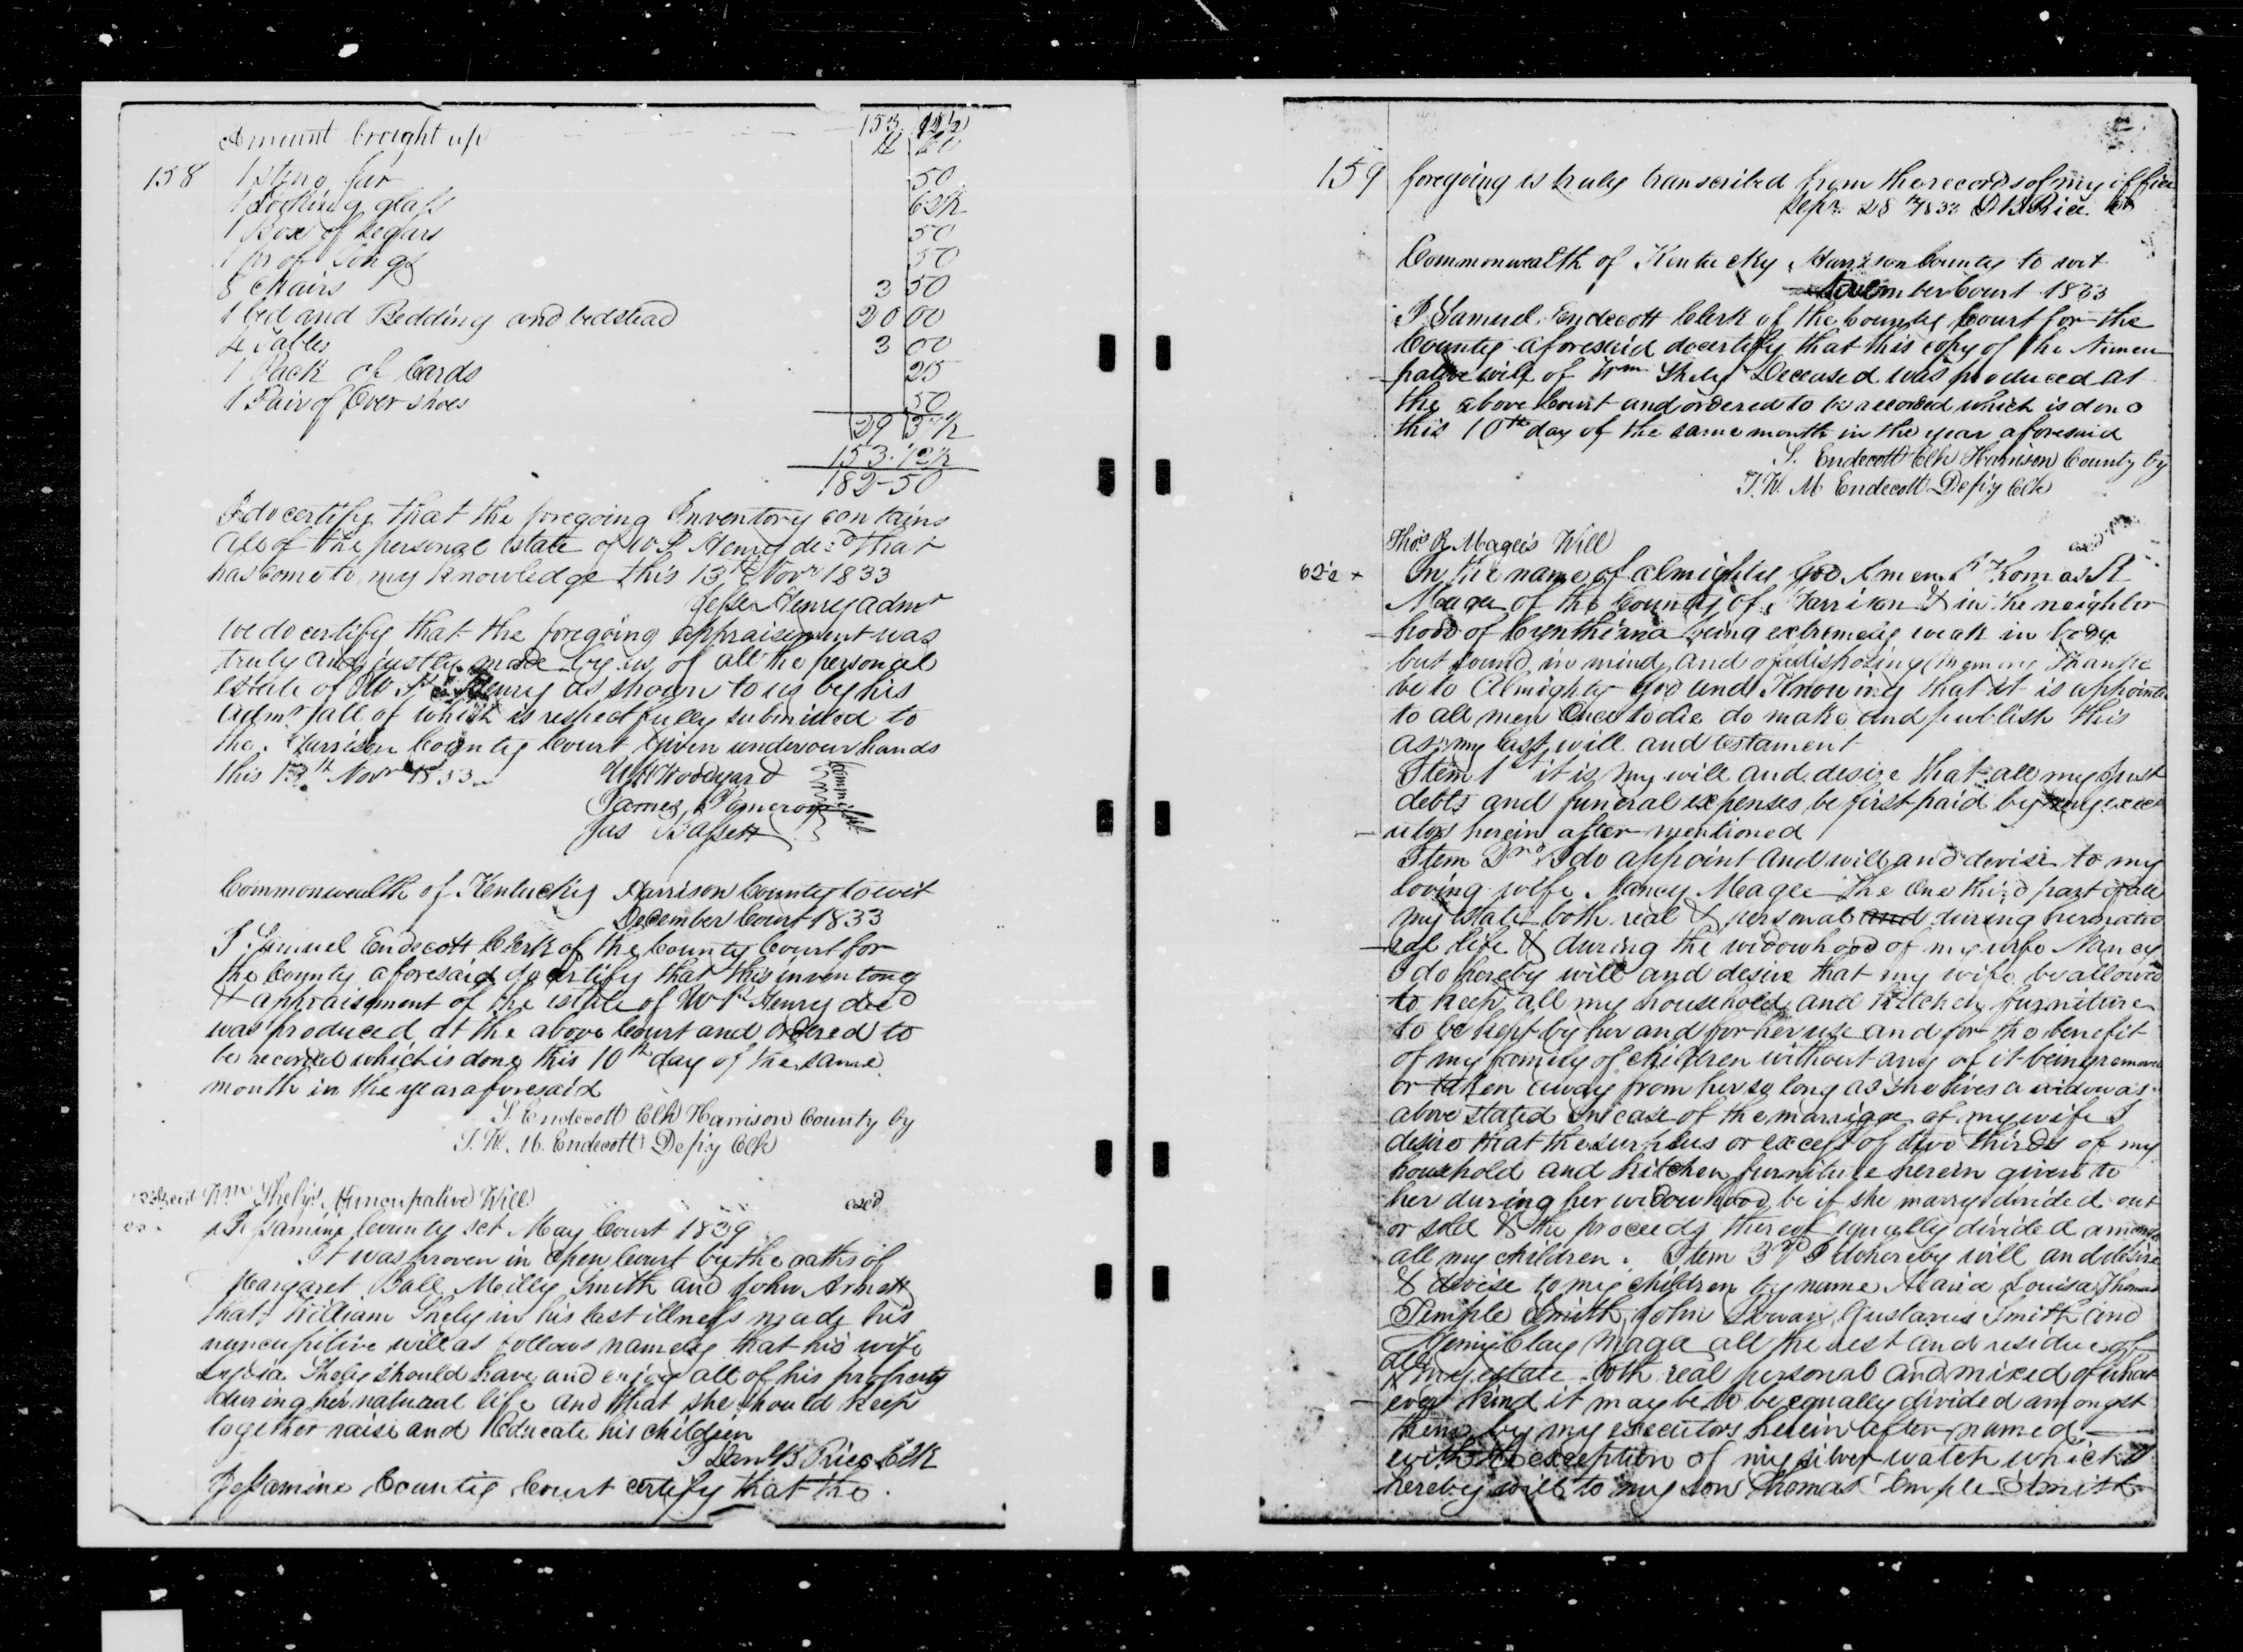 Amount brought up 153 12½
158
1 stone jar 50
1 Looking glass 62½
1 Box of Segars 50
1 pr of Tongs 50
8 chairs 3 50
1 bed and Bedding and bedstead 20 00
4 Tables 3 00
1 Pack of Cards 25
1 Pair of Over shoes 50
29 37½
153.12½
182-50
I do certify that the foregoing Inventory contains
all of the personal estate of W P Henry decd that
has come to my knowledge this 13th Novr 1833
Jesse Henry admr
We do certify that the foregoing appraisement was
truly and justly made by us of all the personal
estate of W P Henry as shown to us by his
admr all of which is respectfully submitted to
the Harrison County Court given under our hands
this 13th Novr 1833
W H Woodyard
James Pomeroy
Jas Bassett
Commonwealth of Kentucky Harrison County to wit
December Court 1833
I Samuel Endecott Clerk of the County Court for
the County aforesaid do certify that this inventory
& appraisement of the estate of W P Henry decd
was produced at the above Court and ordered to
be recorded which is done this 10th day of the same
month in the year aforesaid
S. Endecott Clk Harrison County by
T. W. M. Endecott Depy Clk
Wm Shely's Nuncupative Will exd
Jessamine County sct May Court 1839
It was proven in open Court by the oaths of
Margaret Ball Milly Smith and John Arnett
that William Shely in his last illness made his
nuncupitive will as follows namely that his wife
Lydia Shely should have and enjoy all of his property
during her natural life and that she should keep
together raise and Educate his children
I Danl B Price Clk
Jessamine County Court certify that the
159 foregoing is truly transcribed from the records of my office
Sepr 28th 1833 D B Price Clk
Commonwealth of Kentucky Harrison County to wit
November Court 1833
I Samuel Endecott Clerk of the County Court for the
County aforesaid do certify that this copy of the Nuncu
-pative will of Wm Shely Deceased was produced at
the above Court and ordered to be recorded which is done
this 10th day of the same month in the year aforesaid
S. Endecott Clk Harrison County by
T. W. M Endecott Depy Clk
Thos R Magee's Will
In the name of almighty God Amen. I Thomas R
Magee of the County of Harrison & in the neighbor
-hood of Cynthiana being extremely weak in body
but sound in mind and of disposing memory Thanks
be to Almighty God and Knowing that it is appointed
to all men Once to die do make and publish this
as my last will and testament
Item 1st it is my will and desire that all my just
debts and funeral expenses be first paid by my exec
-utors herein after mentioned
Item 2nd I do appoint and will and devise to my
loving wife Nancy Magee the One third part of all
my estate both real & personal and during her natu
-ral life & during the widowhood of my wife Nancy
I do hereby will and desire that my wife be allowed
to keep all my household and kitchen furniture
to be kept by her and for her use and for the benefit
of my family of children without any of it being removed
or taken away from her so long as she lives a widow as
above stated In case of the marriage of my wife I
desire that the surplus or excess of two thirds of my
household and kitchen furniture herein given to
her during her widowhood be if she marry divided out
or sold & the proceeds thereof equally divided amongst
all my children. Item 3rd I do hereby will and desire
& devise to my children by name Maria Louisa, Thomas
Temple Smith, John Rowan, Gustavus Smith and
Henry Clay Magee all the rest and residue of
all
my estate both real personal and mixed of what
-ever kind it may be to be equally divided amongst
them by my executors herein after named
with the exception of my silver watch which I
hereby will to my son Thomas Temple Smith